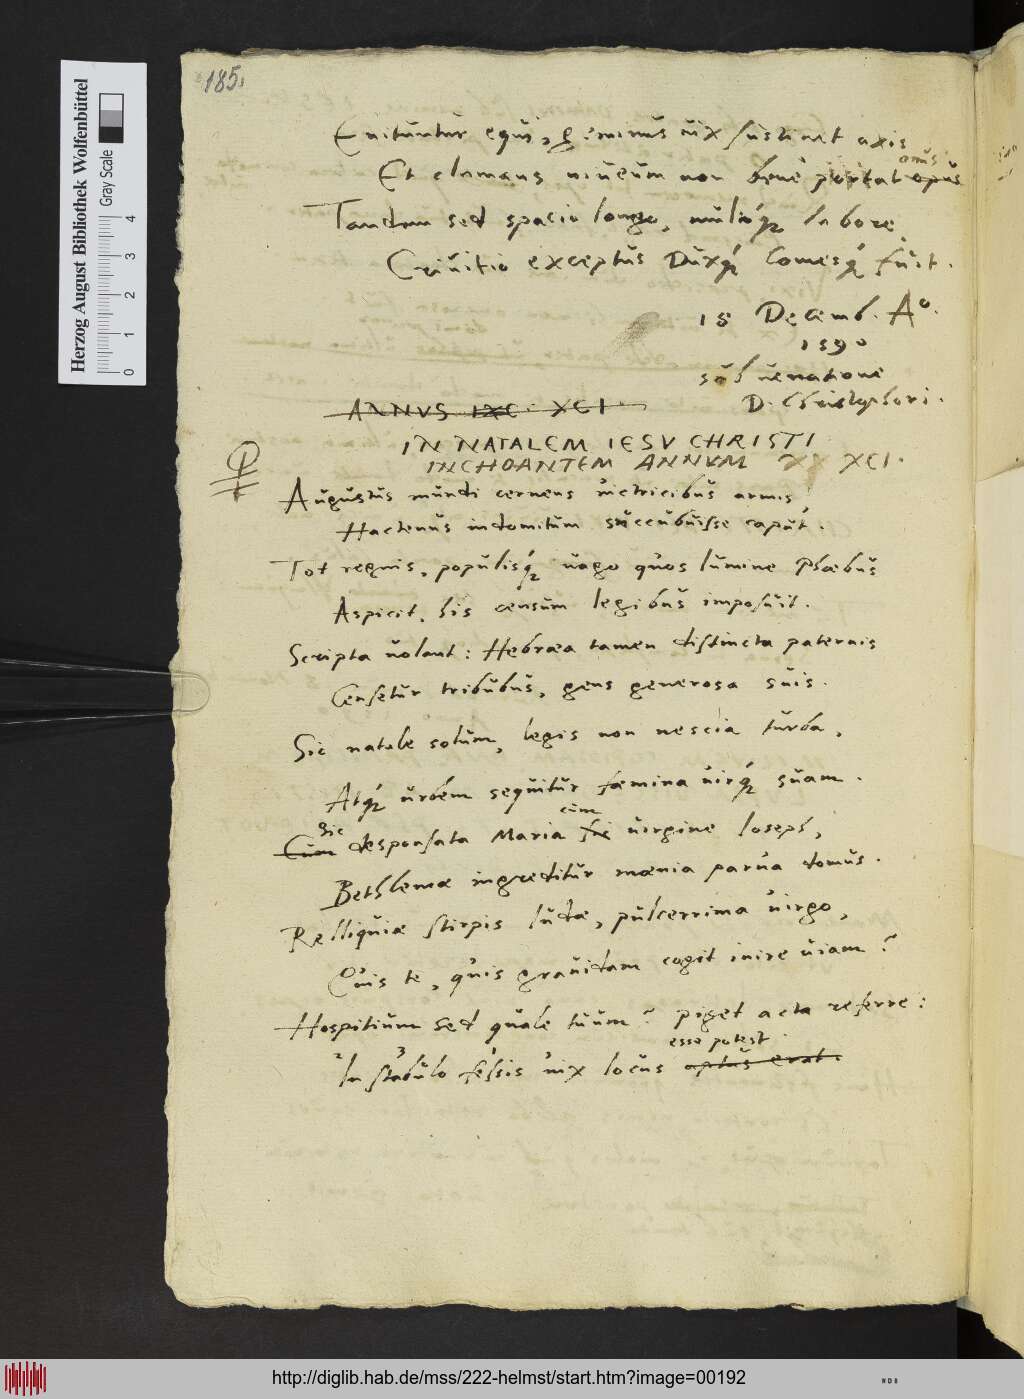 185.
Enituntur equi, geminus uix sustinet axis
onus
Et clamans niueum non bene portat opus
Tandem sed spacio longo, multoq́; labore
Criuitio exceptus Duxq́; Comesq́; fuit.
18 Decemb. Aº.
1590
sub uenatione
D. Christophori.
ANNVS IXC. XCI.
IN NATALEM IESV CHRISTI
INCHOANTEM ANNVM XCI.
Augustus mundi cernens uictricibus armis
Hactenus indomitum succubuisse caput.
Tot regnis, populisq́; uago quos lumine Phœbus
Aspicit, his censum legibus imposuit.
Scripta uolant: Hebræa tamen distincta paternis
Censetur tribubus, gens generosa suis.
Sic natale solum, legis non nescia turba,
Atq́; urbem sequitur fœmina uirq́; suam.
Sic cum
Cum desponsata Maria sic uirgine Ioseph,
Bethlemæ ingreditur mœnia parua domus.
Relliquiæ stirpis Iudæ, pulcerrima uirgo,
Quis te, quis grauidam cogit inire uiam?
Hospitium sed quale tuum? piget acta referre:
esse potest
2 3 1
In stabulo fessis uix locus aptus erat.
Herzog August Bibliothek Wolfenbüttel
Gray Scale
0 1 2 3 4
http://diglib.hab.de/mss/222-helmst/start.htm?image=00192